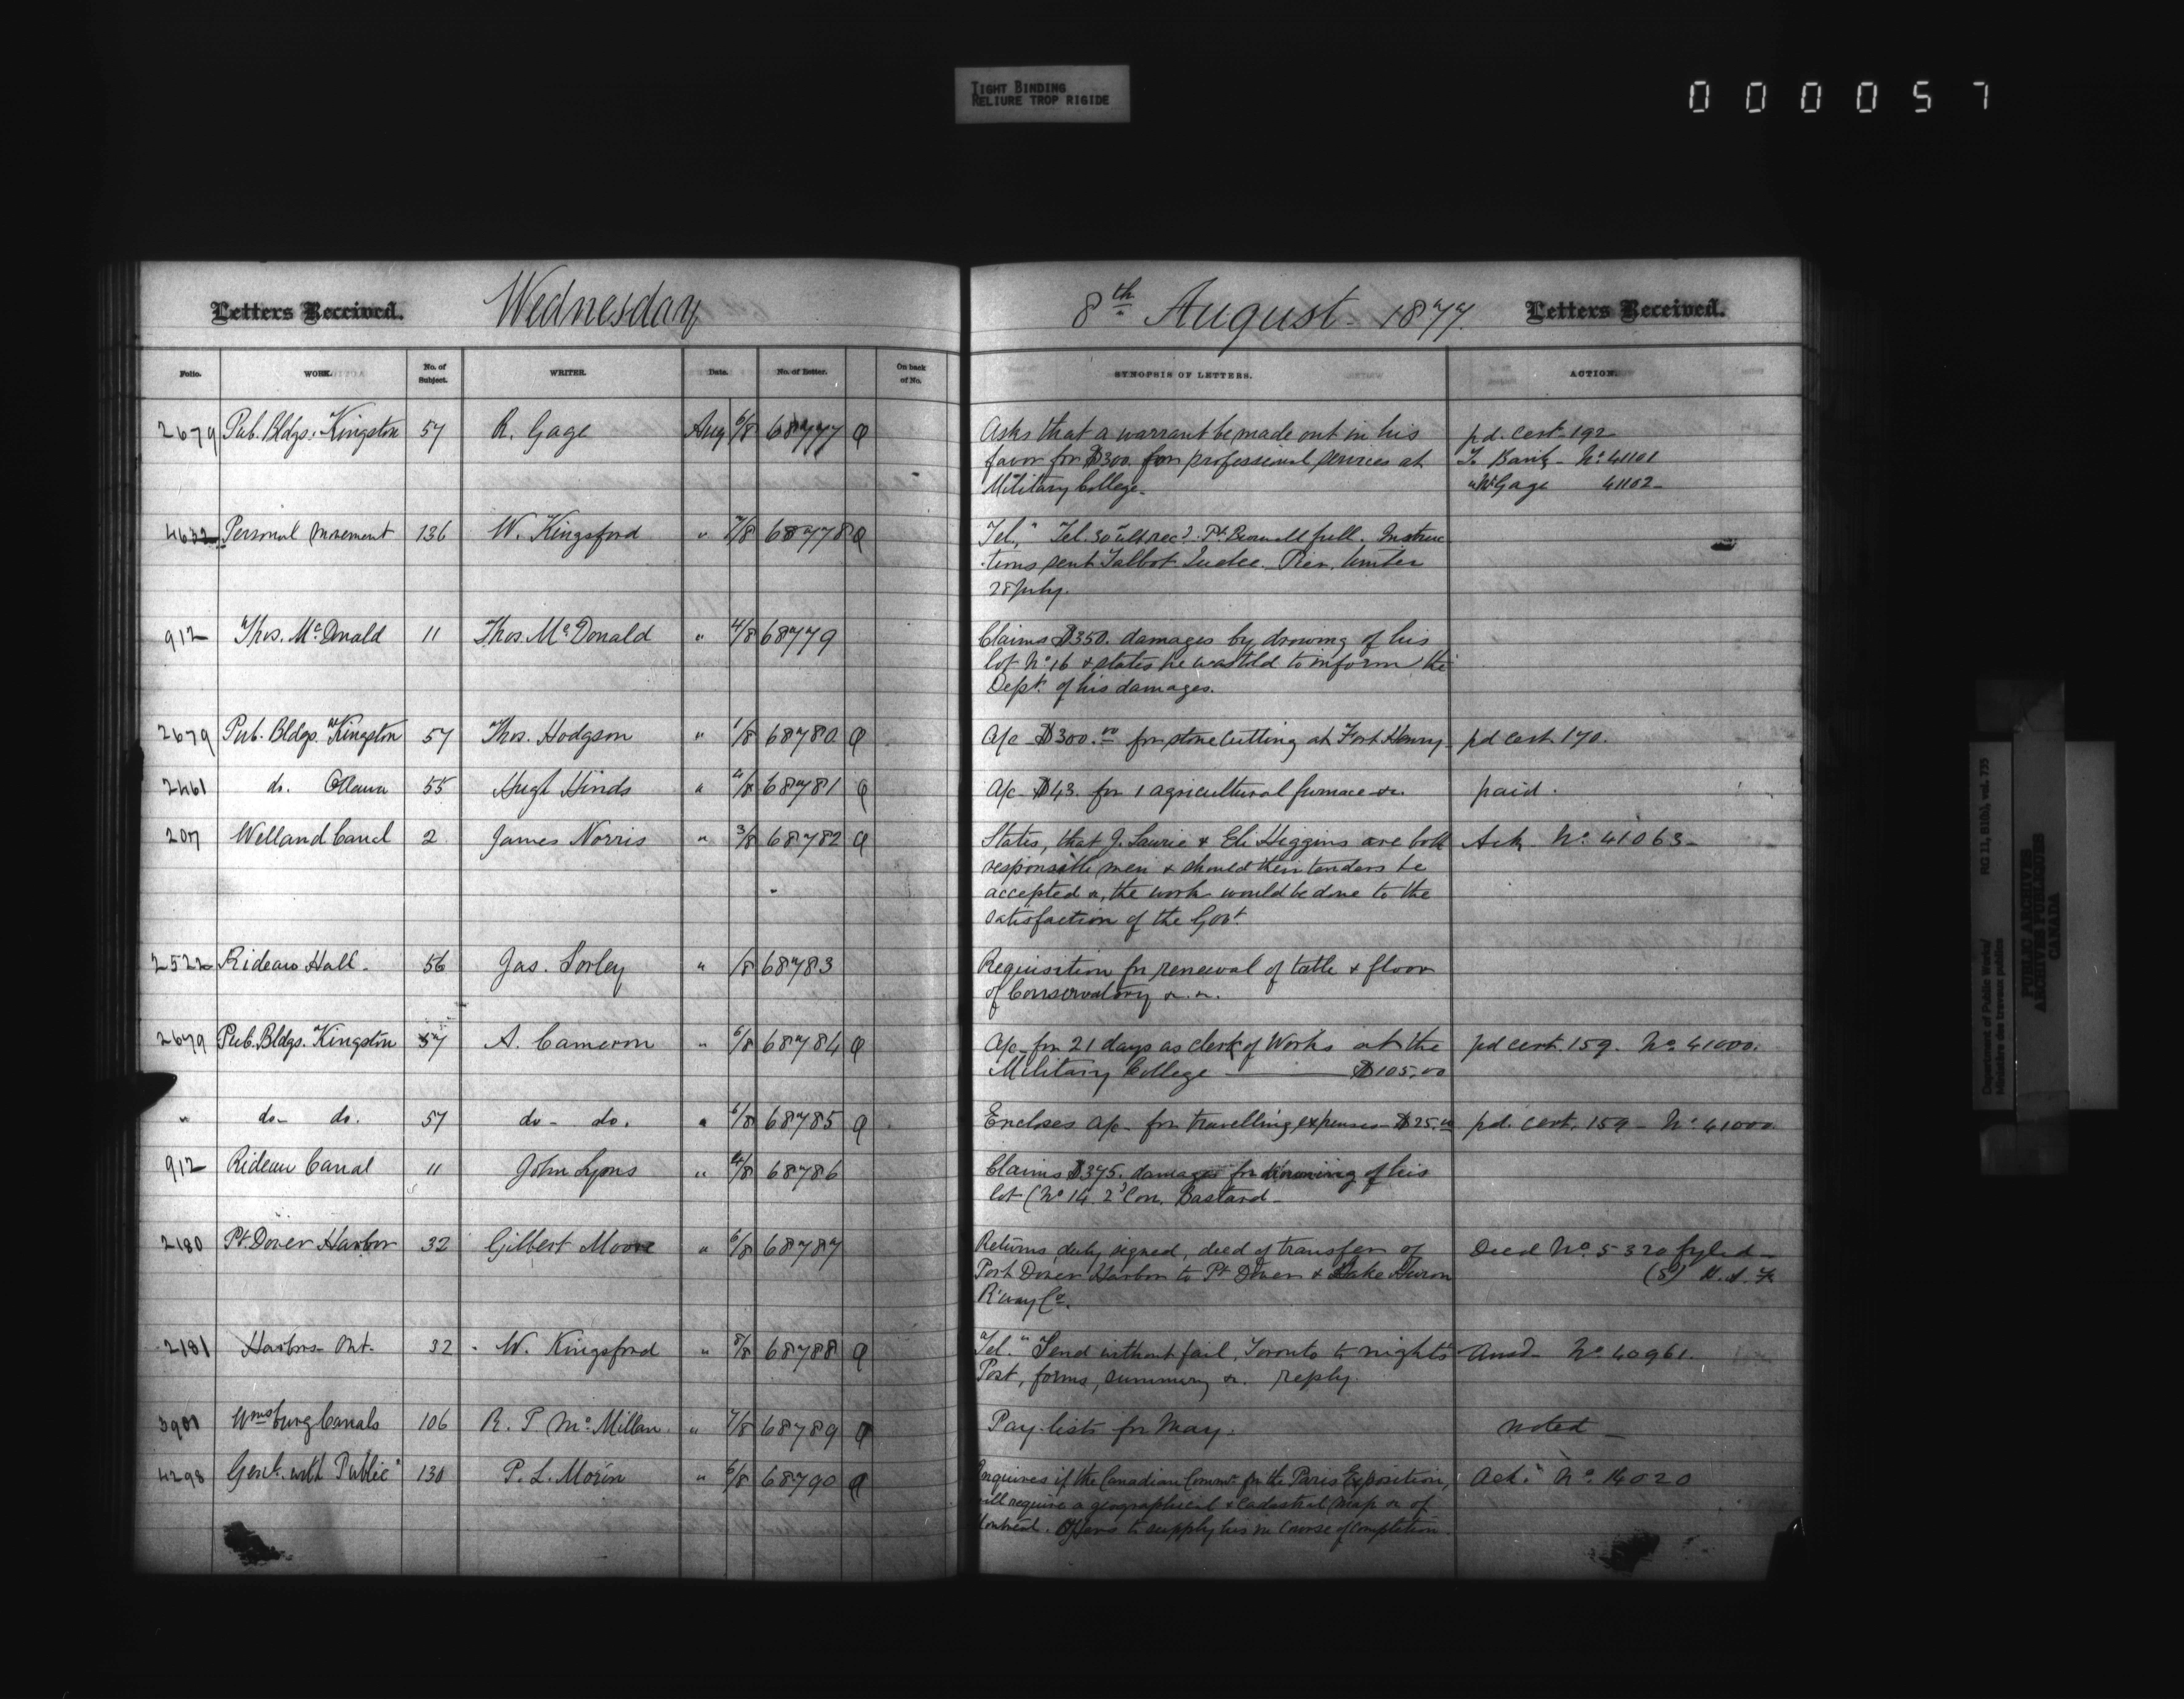 TIGHT BINDING
RELIURE TROP RIGIDE
000057
Letters Received. Wednesday 8th August 1877. Letters Received.
Folio. WORK. No. of Subject. WRITER. Date. No. of Letter. On back of No. SYNOPSIS OF LETTERS. ACTION.
2679 Pub. Bldgs. Kingston 57 R. Gage Aug 6/8 68777 Asks that a warrant be made out in his pd. Cert. 192
favor for $300. for professional services at To Bank - No. 41101
Military College. " Mr Gage 41102
4632 Personal Movement 136 W. Kingsford " 7/8 68778 "Tel." Tel. 30 ult recd. full. Instruc
tions sent Talbot
28 July.
912 Thos. McDonald 11 Thos. McDonald " 4/8 68779 Claims $350. damages by drowng of his
lot No. 16 & states he was told to inform the
Dept. of his damages.
2679 Pub. Bldgs. Kingston 57 Thos. Hodgson " 1/8 68780 A/c $300.00 for stone cutting at Fort Henry. pd cert 170.
2461 do. Ottawa 55 Hugh Hinds " 4/8 68781 A/c $43. for 1 agricultural furnace &c. paid.
207 Welland Canal 2 James Norris " 3/8 68782 States, that J. Lawrie & Eli Higgins are both Ack No. 41063
responsible men & should their tenders be
accepted &, the work would be done to the
satisfaction of the Govt.
2522 Rideau Hall 56 Jas. Sorley " /8 68783 Requisition for renewal of & floor
of Conservatory &. &.
2679 Pub. Bldgs. Kingston 57 A. Cameron " 6/8 68784 A/c for 21 days as clerk of Works at the pd cert. 159. No. 41000.
Military College $105.00
" do- do. 57 do- do. " 6/8 68785 Encloses a/c for travelling expenses $25.00 pd. cert. 159 - No. 41000
912 Rideau Canal 11 John Lyons " 4/8 68786 Claims $375. damages for drowning of his
lot (No 14. 2d Con. Bastard
2180 Pt. Dover Harbor 32 Gilbert Moore " 6/8 68787 Returns, duly signed, deed of transfer of Deed No. 5320 fyled
Port Dover Harbor to Pt Dover & Lake Huron
R'way Co.
2181 Harbors Ont. 32 W. Kingsford " 8/8 68788 "Tel." Send without fail, Toronto to nights Ansd No. 40961.
Post, forms, summary &. reply.
3901 Wmsburg Canals 106 R. P. McMillan " 7/8 68789 Pay lists for May. noted
4298 Genl. with Public 130 P. L. Morin " 6/8 68790 Enquires if the Canadian Commn. for the Paris Exposition, Ack. No. 16020
will require a geographical & cadastral map &. of
Montreal. Offers to supply his in course of completion.
Department of Public Works/ RG 11, B1(b), vol. 735
Ministère des travaux publics
PUBLIC ARCHIVES
ARCHIVES PUBLIQUES
CANADA